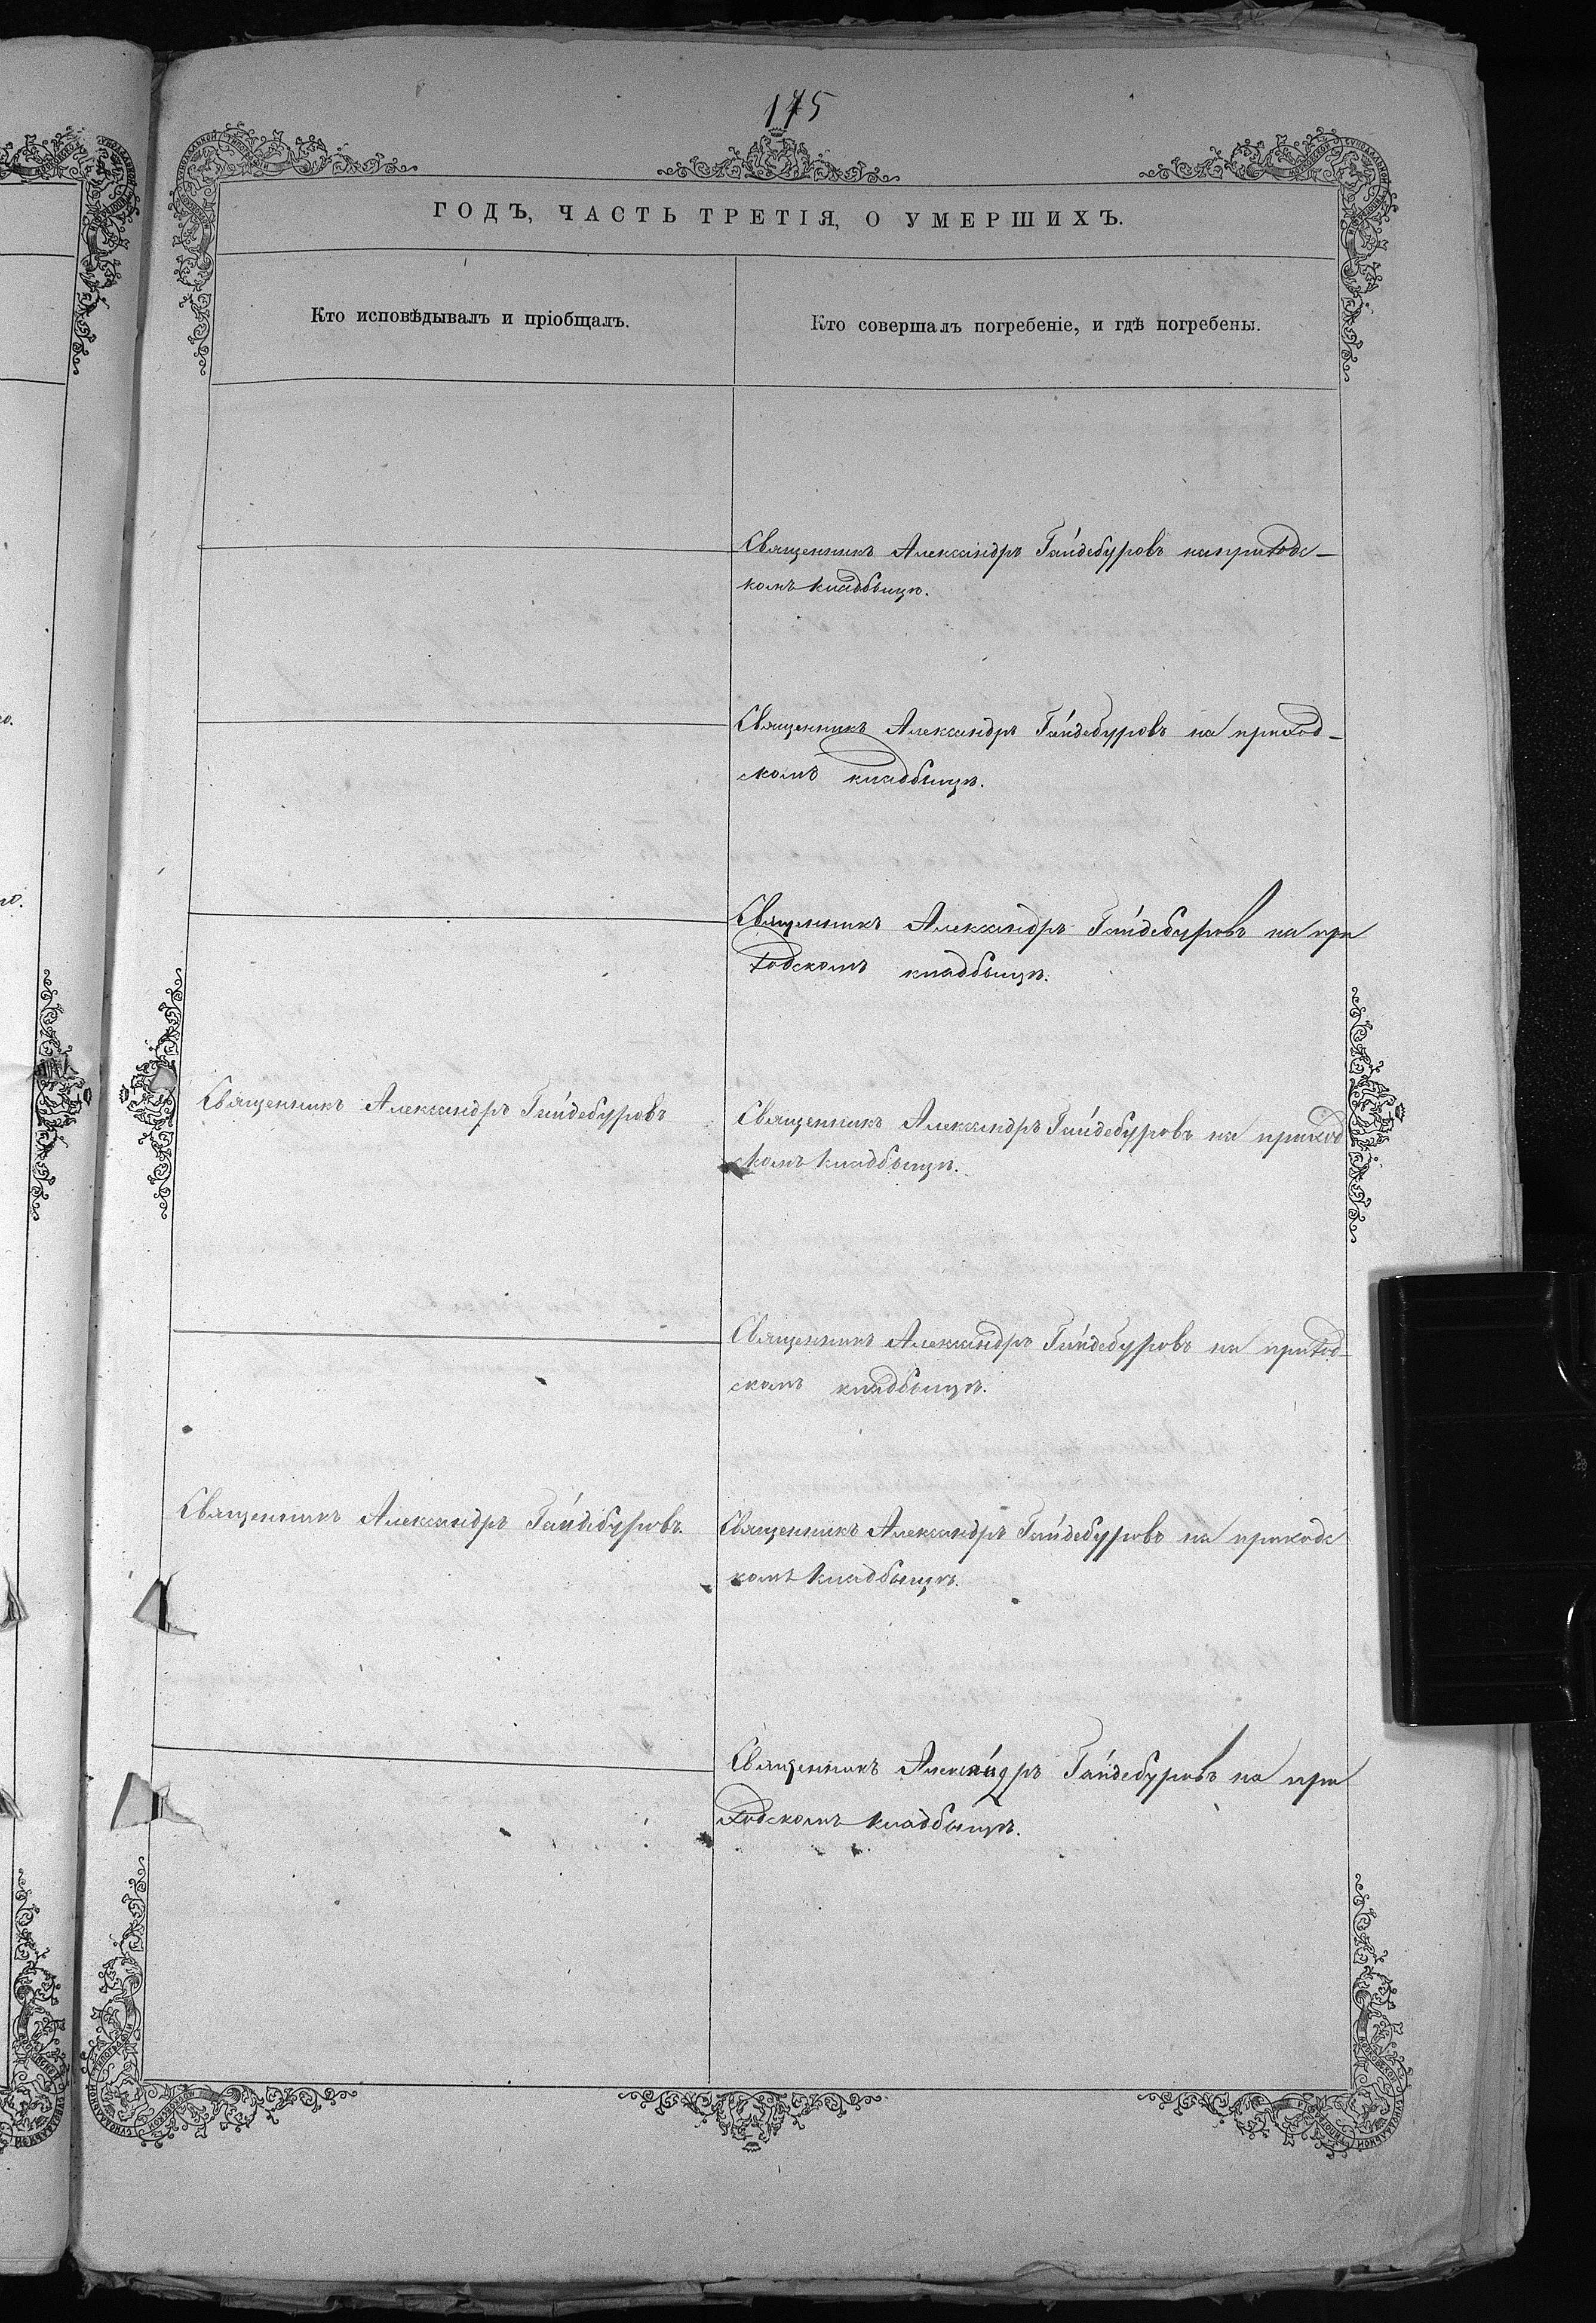 175
ГОДЪ, ЧАСТЬ ТРЕТІЯ, О УМЕРШИХЪ.
Кто исповѣдывалъ и пріобщалъ.
Кто совершалъ погребеніе, и гдѣ погребены.
Священникъ Александръ Гайдебуровъ на приходс-
комъ кладбыщѣ.
Священникъ Александръ Гайдебуровъ на приход-
скомъ кладбыщѣ.
Священникъ Александръ Гайдебуровъ на при
ходскомъ кладбыщѣ.
Священникъ Александръ Гайдебуровъ
Священникъ Александръ Гайдебуровъ на приход
скомъ кладбыщѣ.
Священникъ Александръ Гайдебуровъ на приход-
скомъ кладбыщѣ.
Священникъ Александръ Гайдебуровъ.
Священникъ Александръ Гайдебуровъ на приходс
комъ кладбыщѣ.
Священникъ Александръ Гайдебуровъ на при
ходскомъ кладбыщѣ.